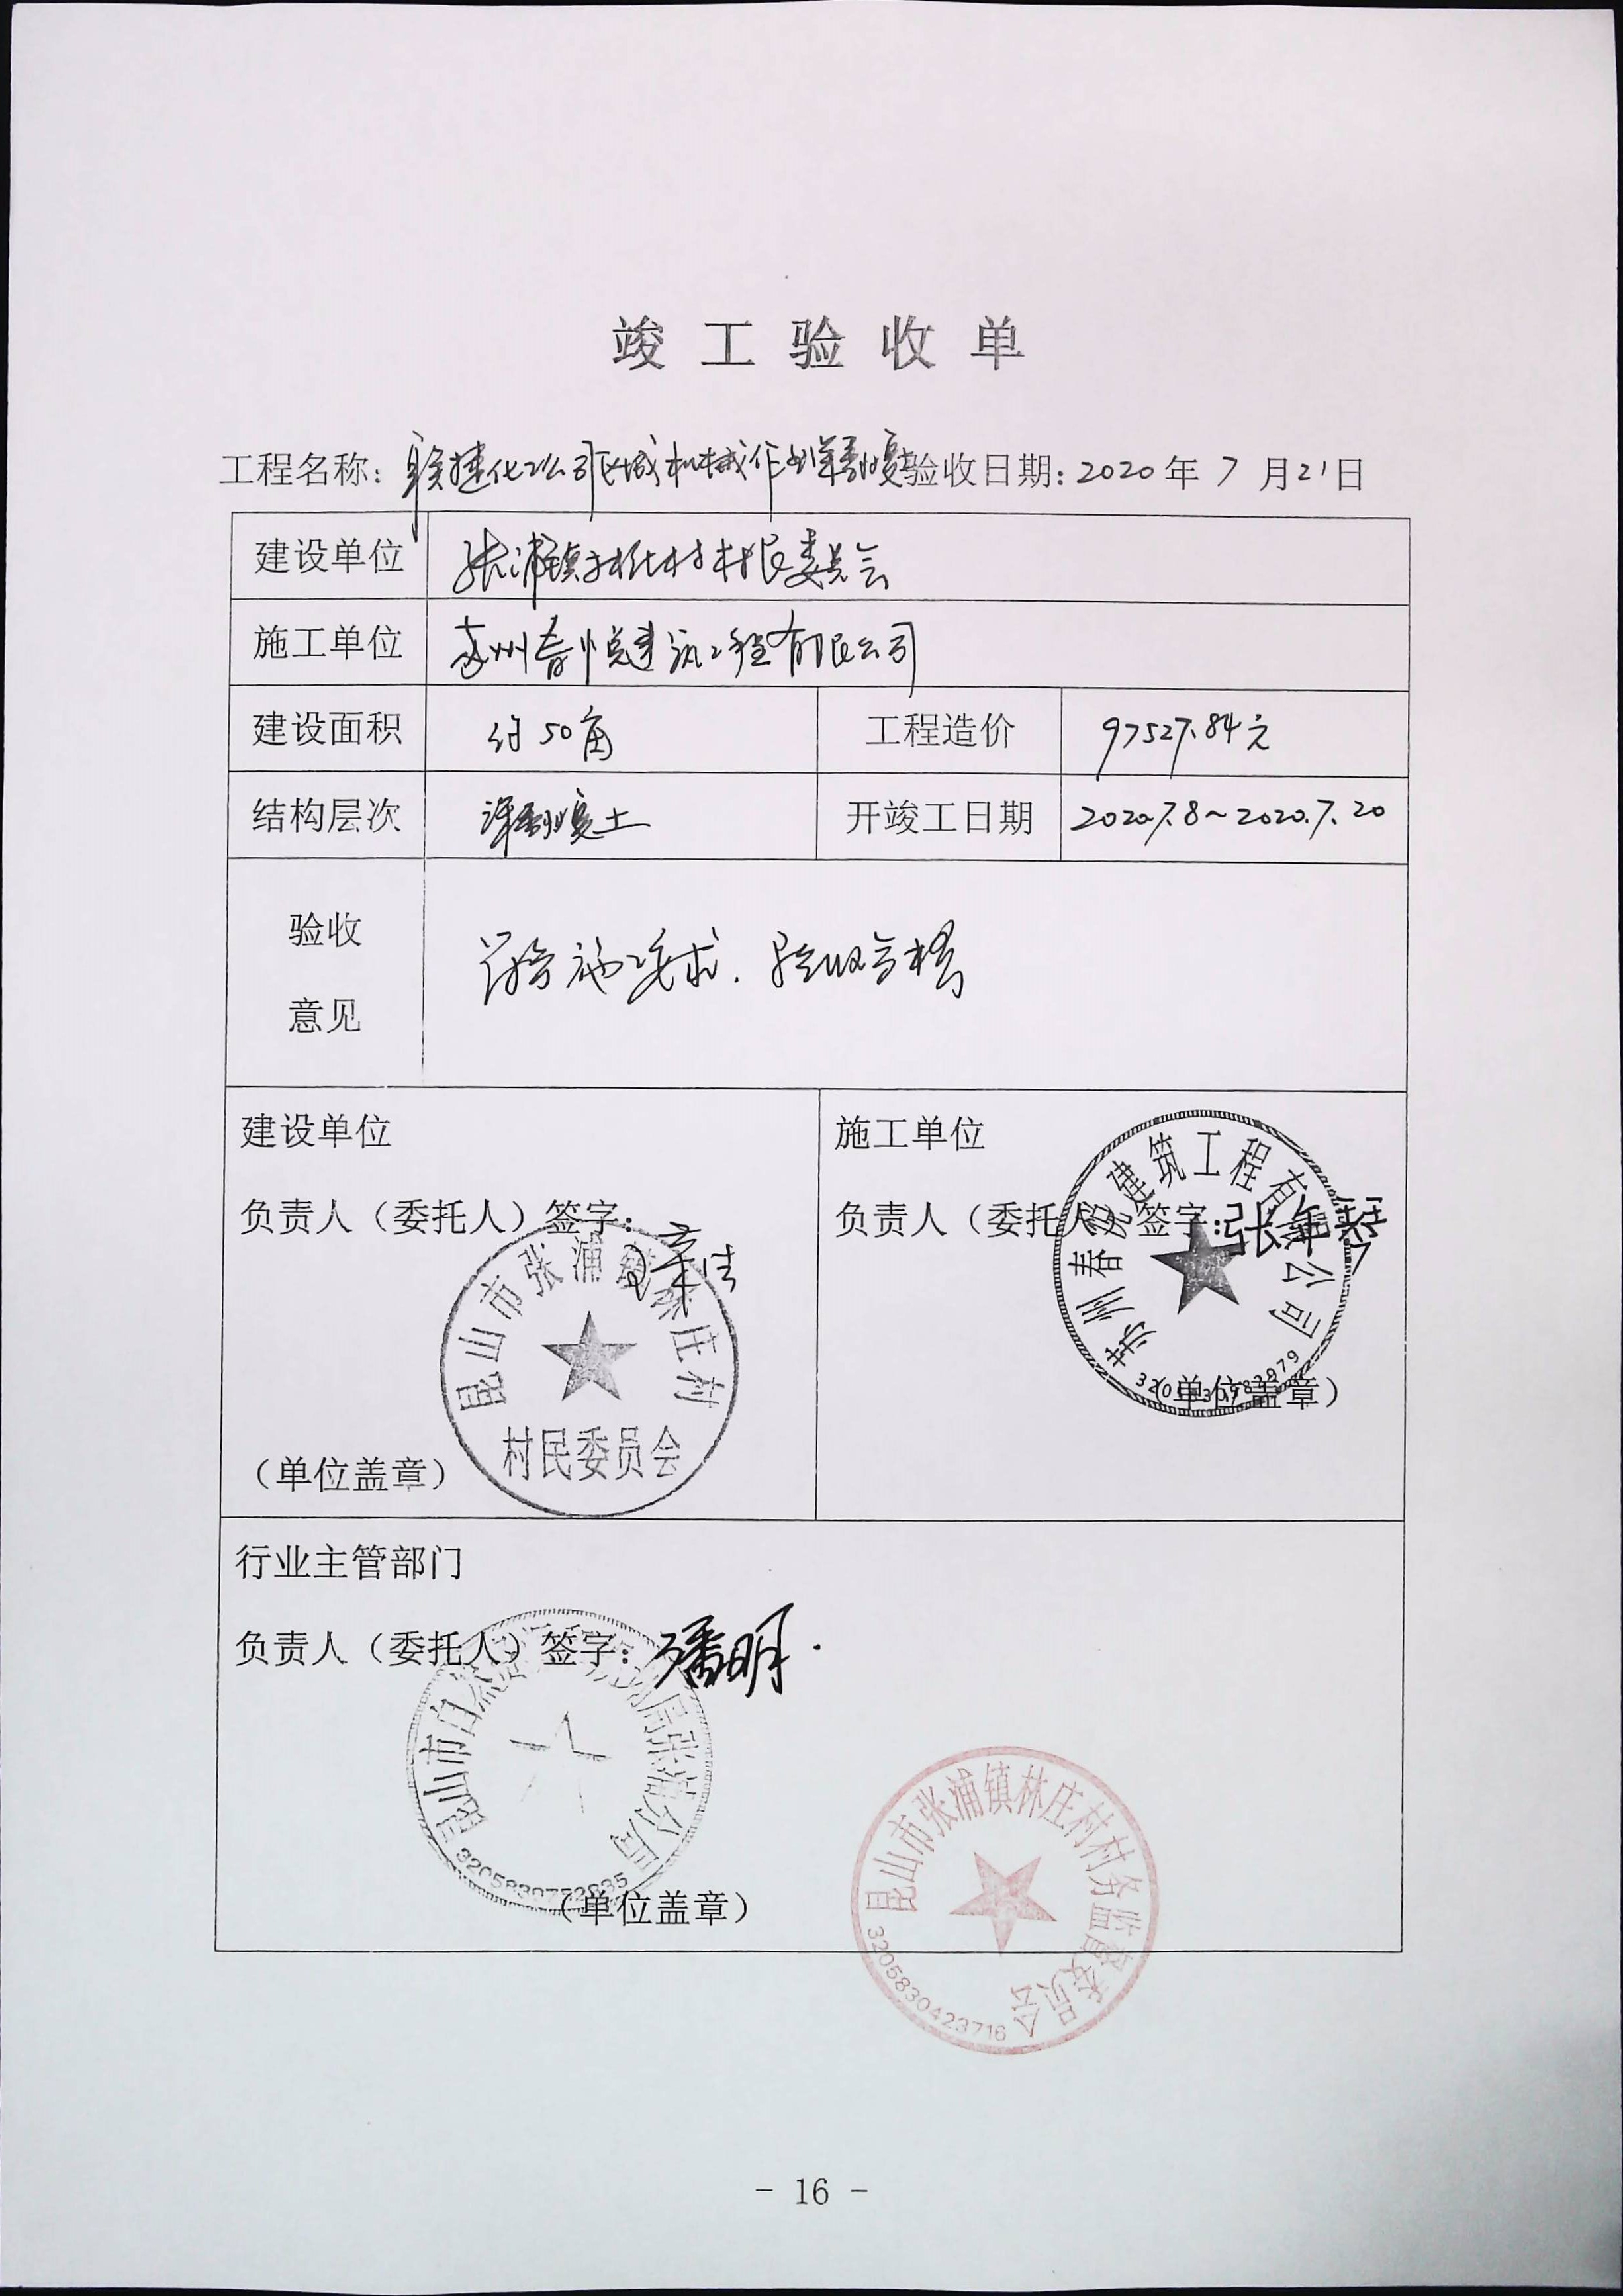 竣工验收单
工程名称：联捷化工公司区域机械作业 验收日期：2020年7月21日
建设单位 张浦镇林庄村村民委员会
施工单位 苏州春悦建筑工程有限公司
建设面积 约50亩 工程造价 97527.84元
结构层次 复土 开竣工日期 2020.7.8~2020.7.20
验收
意见
符合施工要求.验收合格
建设单位
负责人（委托人）签字：
昆山市张浦镇林庄村
村民委员会
（单位盖章）
施工单位
负责人（委托人）签字：张年琴
苏州春悦建筑工程有限公司
（单位盖章）
行业主管部门
负责人（委托人）签字：潘明
昆山市自然资源和规划局张浦分局
（单位盖章）
昆山市张浦镇林庄村村务监督委员会
3205830423716
- 16 -